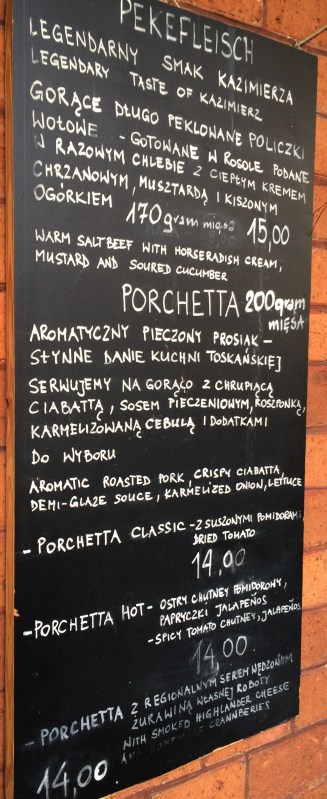 PEKEFLEISCH
LEGENDARNY SMAK KAZIMIERZA
LEGENDARY TASTE OF KAZIMIERZ
GORĄCE DŁUGO PEKLOWANE POLICZKI
WOŁOWE - GOTOWANE W ROSOLE PODANE
W RAZOWYM CHLEBIE Z CIEPŁYM KREMEM
CHRZANOWYM, MUSZTARDĄ I KISZONYM
OGÓRKIEM 170gram mięsa 15,00
WARM SALTBEEF WITH HORSERADISH CREAM,
MUSTARD AND SOURED CUCUMBER
PORCHETTA 200gram
MIĘSA
AROMATYCZNY PIECZONY PROSIAK -
SŁYNNE DANIE KUCHNI TOSKAŃSKIEJ
SERWUJEMY NA GORĄCO Z CHRUPIĄCĄ
CIABATTĄ, SOSEM PIECZENIOWYM, ROSZPONKĄ,
KARMELIZOWANĄ CEBULĄ I DODATKAMI
DO WYBORU
AROMATIC ROASTED PORK, CRISPY CIABATTA,
DEMI-GLAZE SOUCE, KARMELIZED ONION, LETTUCE
- PORCHETTA CLASSIC - Z SUSZONYMI POMIDORAMI,
DRIED TOMATO
14,00
- PORCHETTA HOT - OSTRY CHUTNEY POMIDOROWY,
PAPRYCZKI JALAPEÑOS
- SPICY TOMATO CHUTNEY, JALAPEÑOS
14,00
- PORCHETTA Z REGIONALNYM SEREM WĘDZONYM
ŻURAWINĄ WŁASNEJ ROBOTY
WITH SMOKED HIGHLANDER CHEESE
CRANNBERIES
14,00